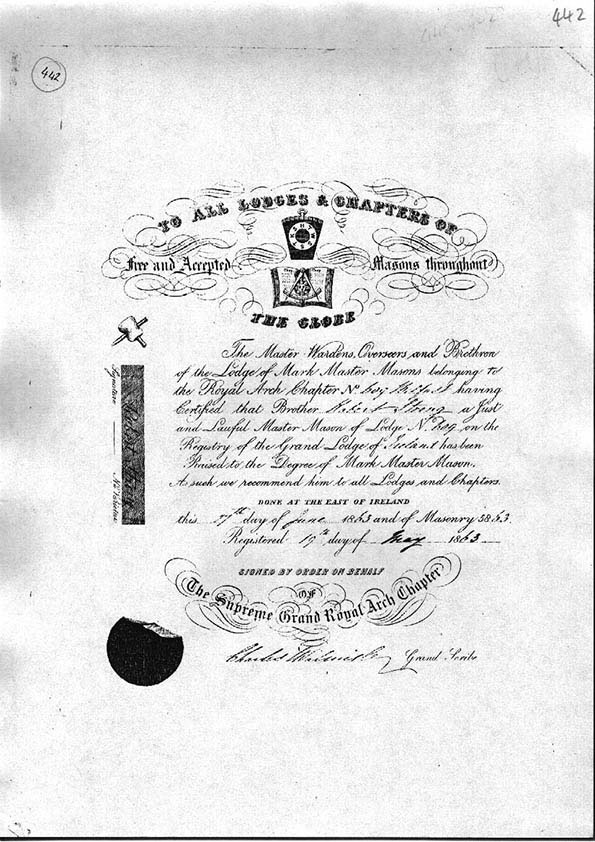 442
442
TO ALL LODGES & CHAPTERS OF
Free and Accepted Masons throughout
THE GLOBE
The Master Wardens, Overseers, and Brethren
of the Lodge of Mark Master Masons belonging to
the Royal Arch Chapter No having
Certified that Brother Robert Strong a Just
and Lawful Master Mason of Lodge No 809 on the
Registry of the Grand Lodge of Ireland has been
Raised to the Degree of Mark Master Mason.
As such we recommend him to all Lodges and Chapters.
DONE AT THE EAST OF IRELAND
this day of June 1863 and of Masonry 5863.
Registered 19th day of May 1863
SIGNED BY ORDER ON BEHALF
OF
The Supreme Grand Royal Arch Chapter
Charles Grand Scribe
Signature
Ne Varietur